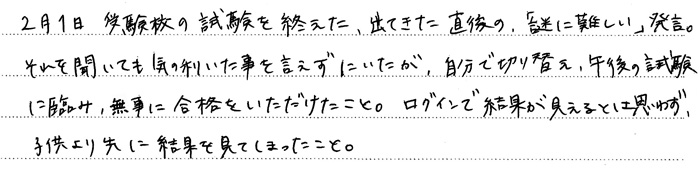 2月1日 受験校の試験を終えた、出てきた直後の、「謎に難しい」発言。
それを聞いても気の利いた事を言えずにいたが、自分で切り替え、午後の試験
に臨み、無事に合格をいただけたこと。ログインで結果が見えるとは思わず、
子供より先に結果を見てしまったこと。